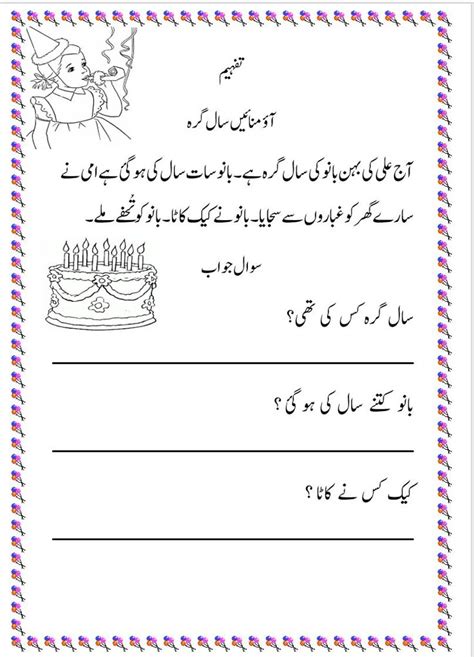 تفہیم
آؤ منائیں سال گرہ
آج علی کی بہن بانو کی سال گرہ ہے۔ بانو سات سال کی ہو گئی ہے امی نے
سارے گھر کو غباروں سے سجایا۔ بانو نے کیک کاٹا۔ بانو کو تُحفے ملے۔
سوال جواب
سال گرہ کس کی تھی؟
بانو کتنے سال کی ہو گئ ؟
کیک کس نے کاٹا ؟